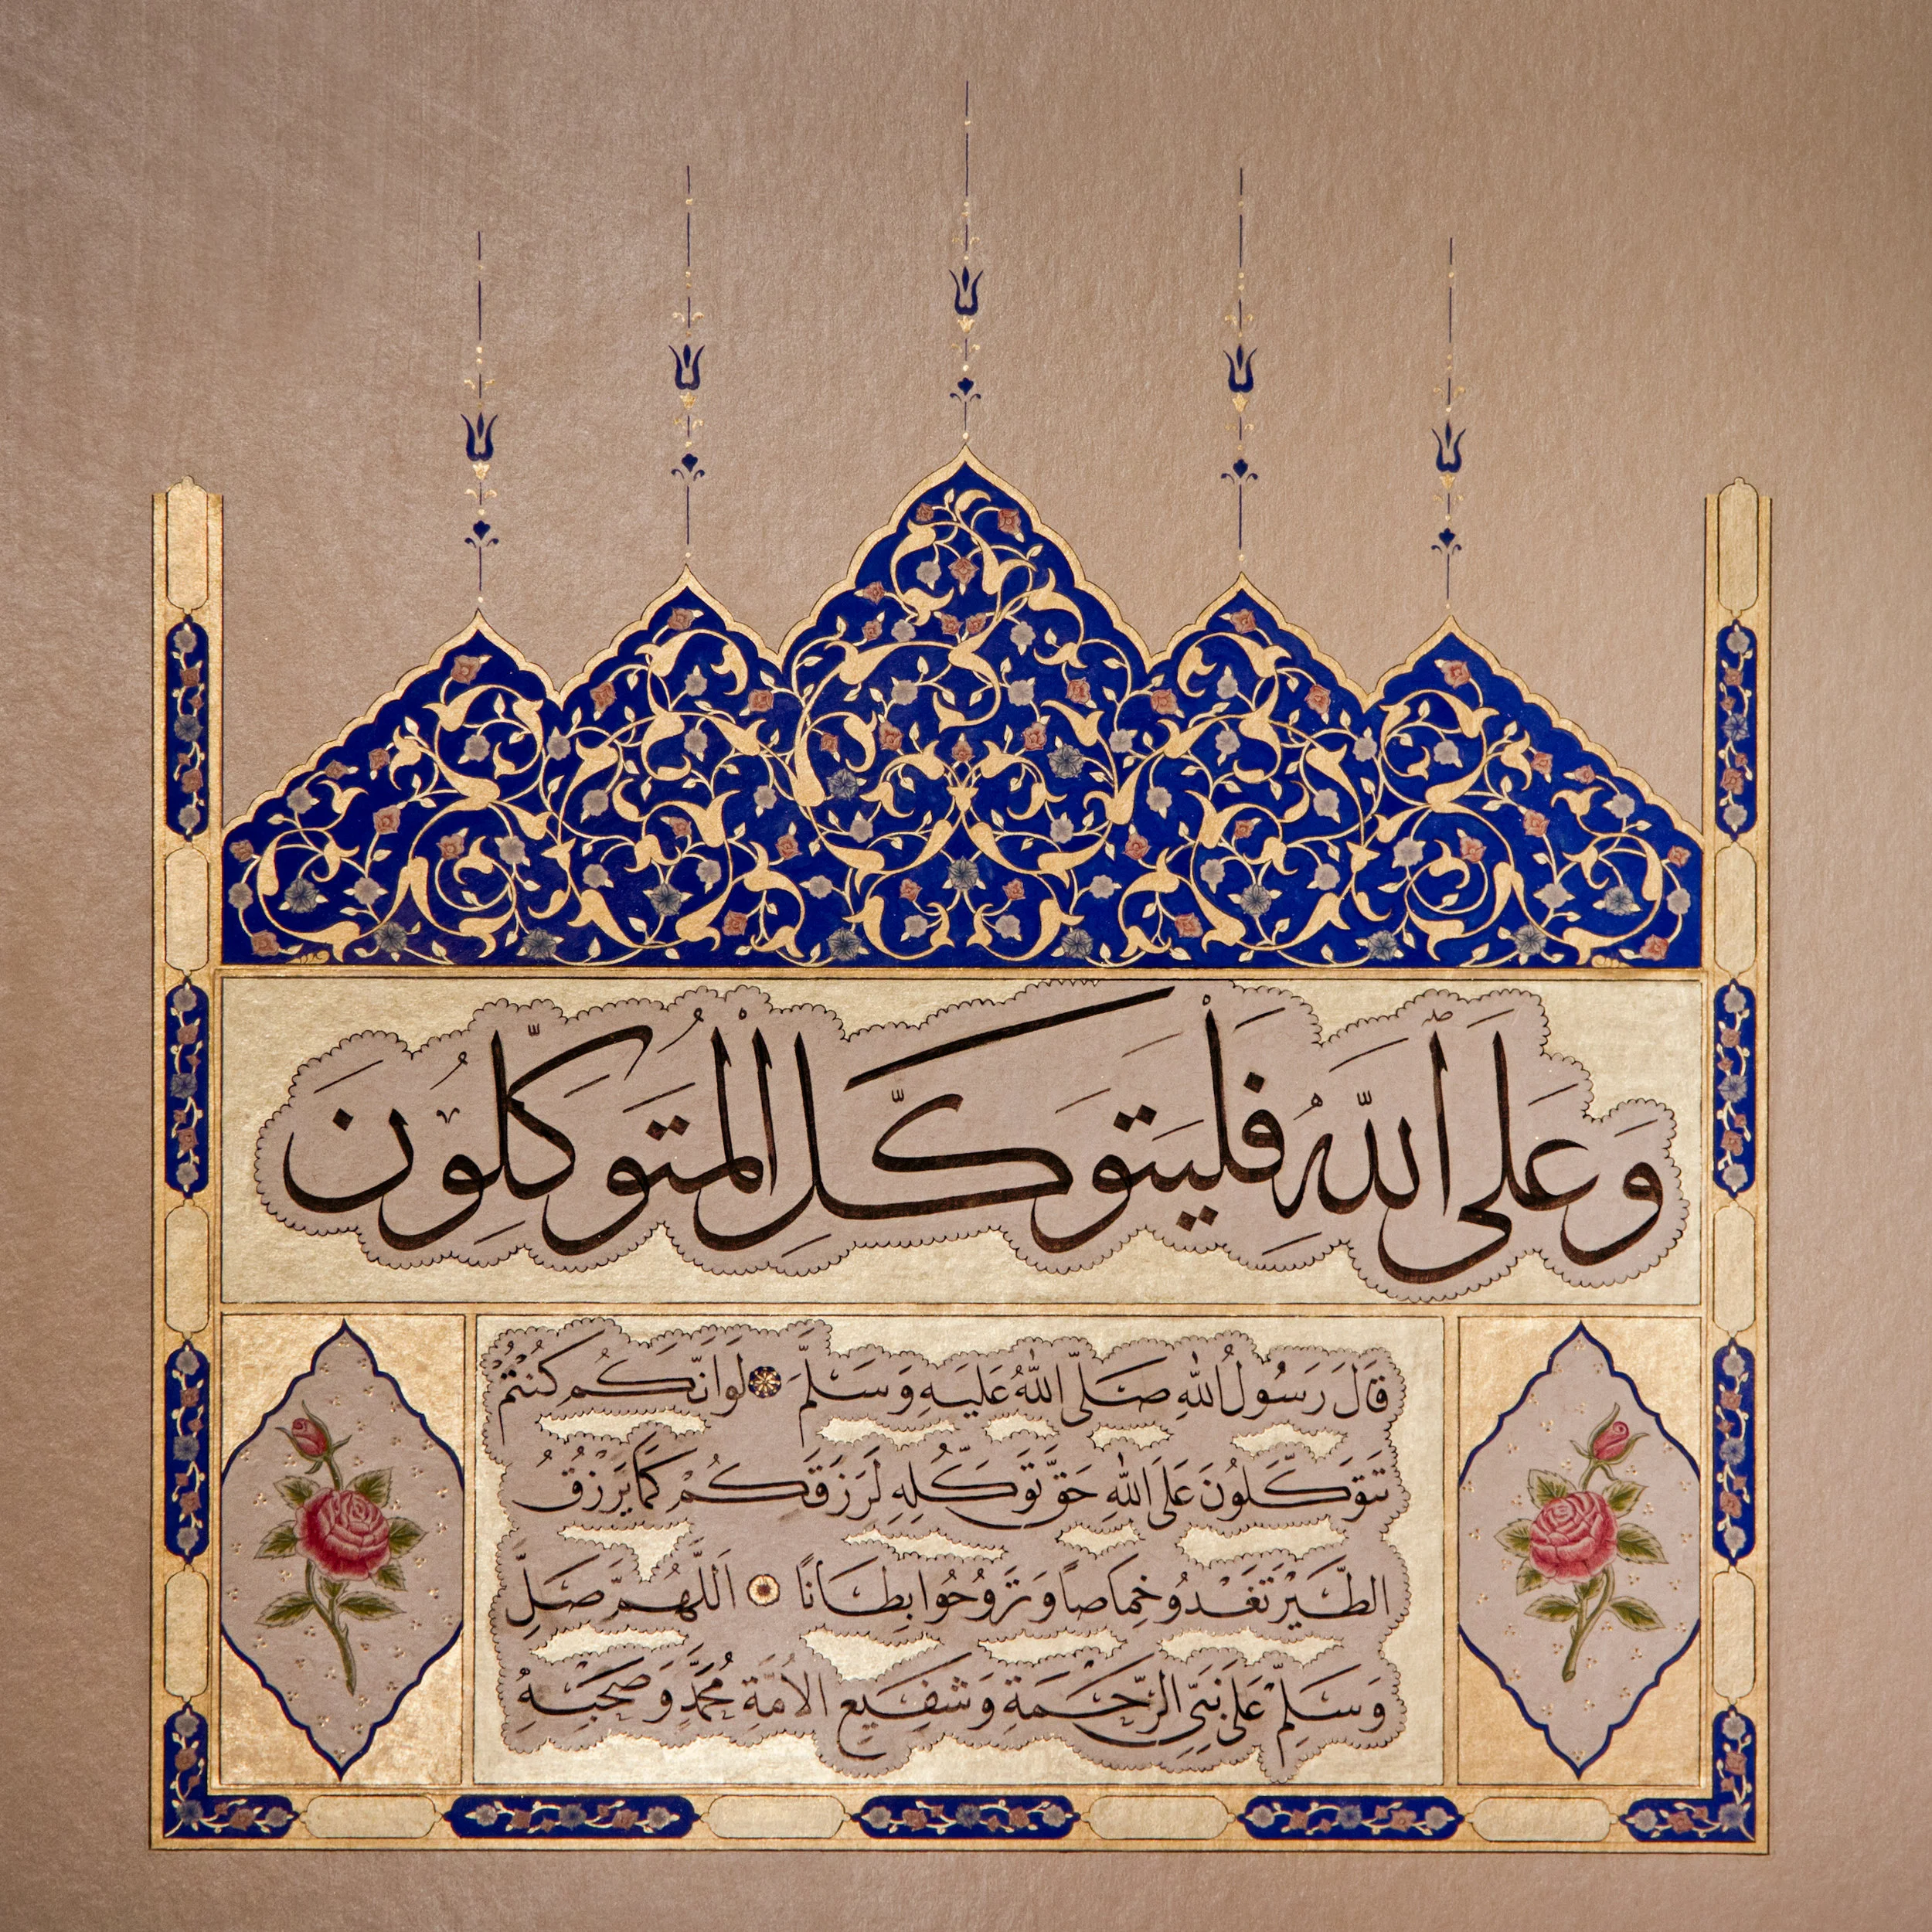 وَعَلَى ٱللَّهِ فَلْيَتَوَكَّلِ الْمُتَوَكِّلُونَ
قَالَ رَسُولُ اللّٰهِ صَلَّى اللّٰهُ عَلَيهِ وَسَلَّمَ لَوْ اَنَّكُم كُنْتُمْ
تَتَوَكَّلُونَ عَلَى اللّٰهِ حَقَّ تَوَكُّلِهِ لَرَزَقَكُمْ كَمَا يَرْزُقُ
الطَّيْرَ تَغْدُو خِمَاصاً وَتَرُوحُوا بِطَانًا اَللّٰهُمَّ صَلِّ
وَسَلِّمْ عَلَى نَبِيِّ الرَّحْمَةِ وَشَفِيعِ الاُمَّةِ مُحَمَّدٍ وَصَحْبِهِ